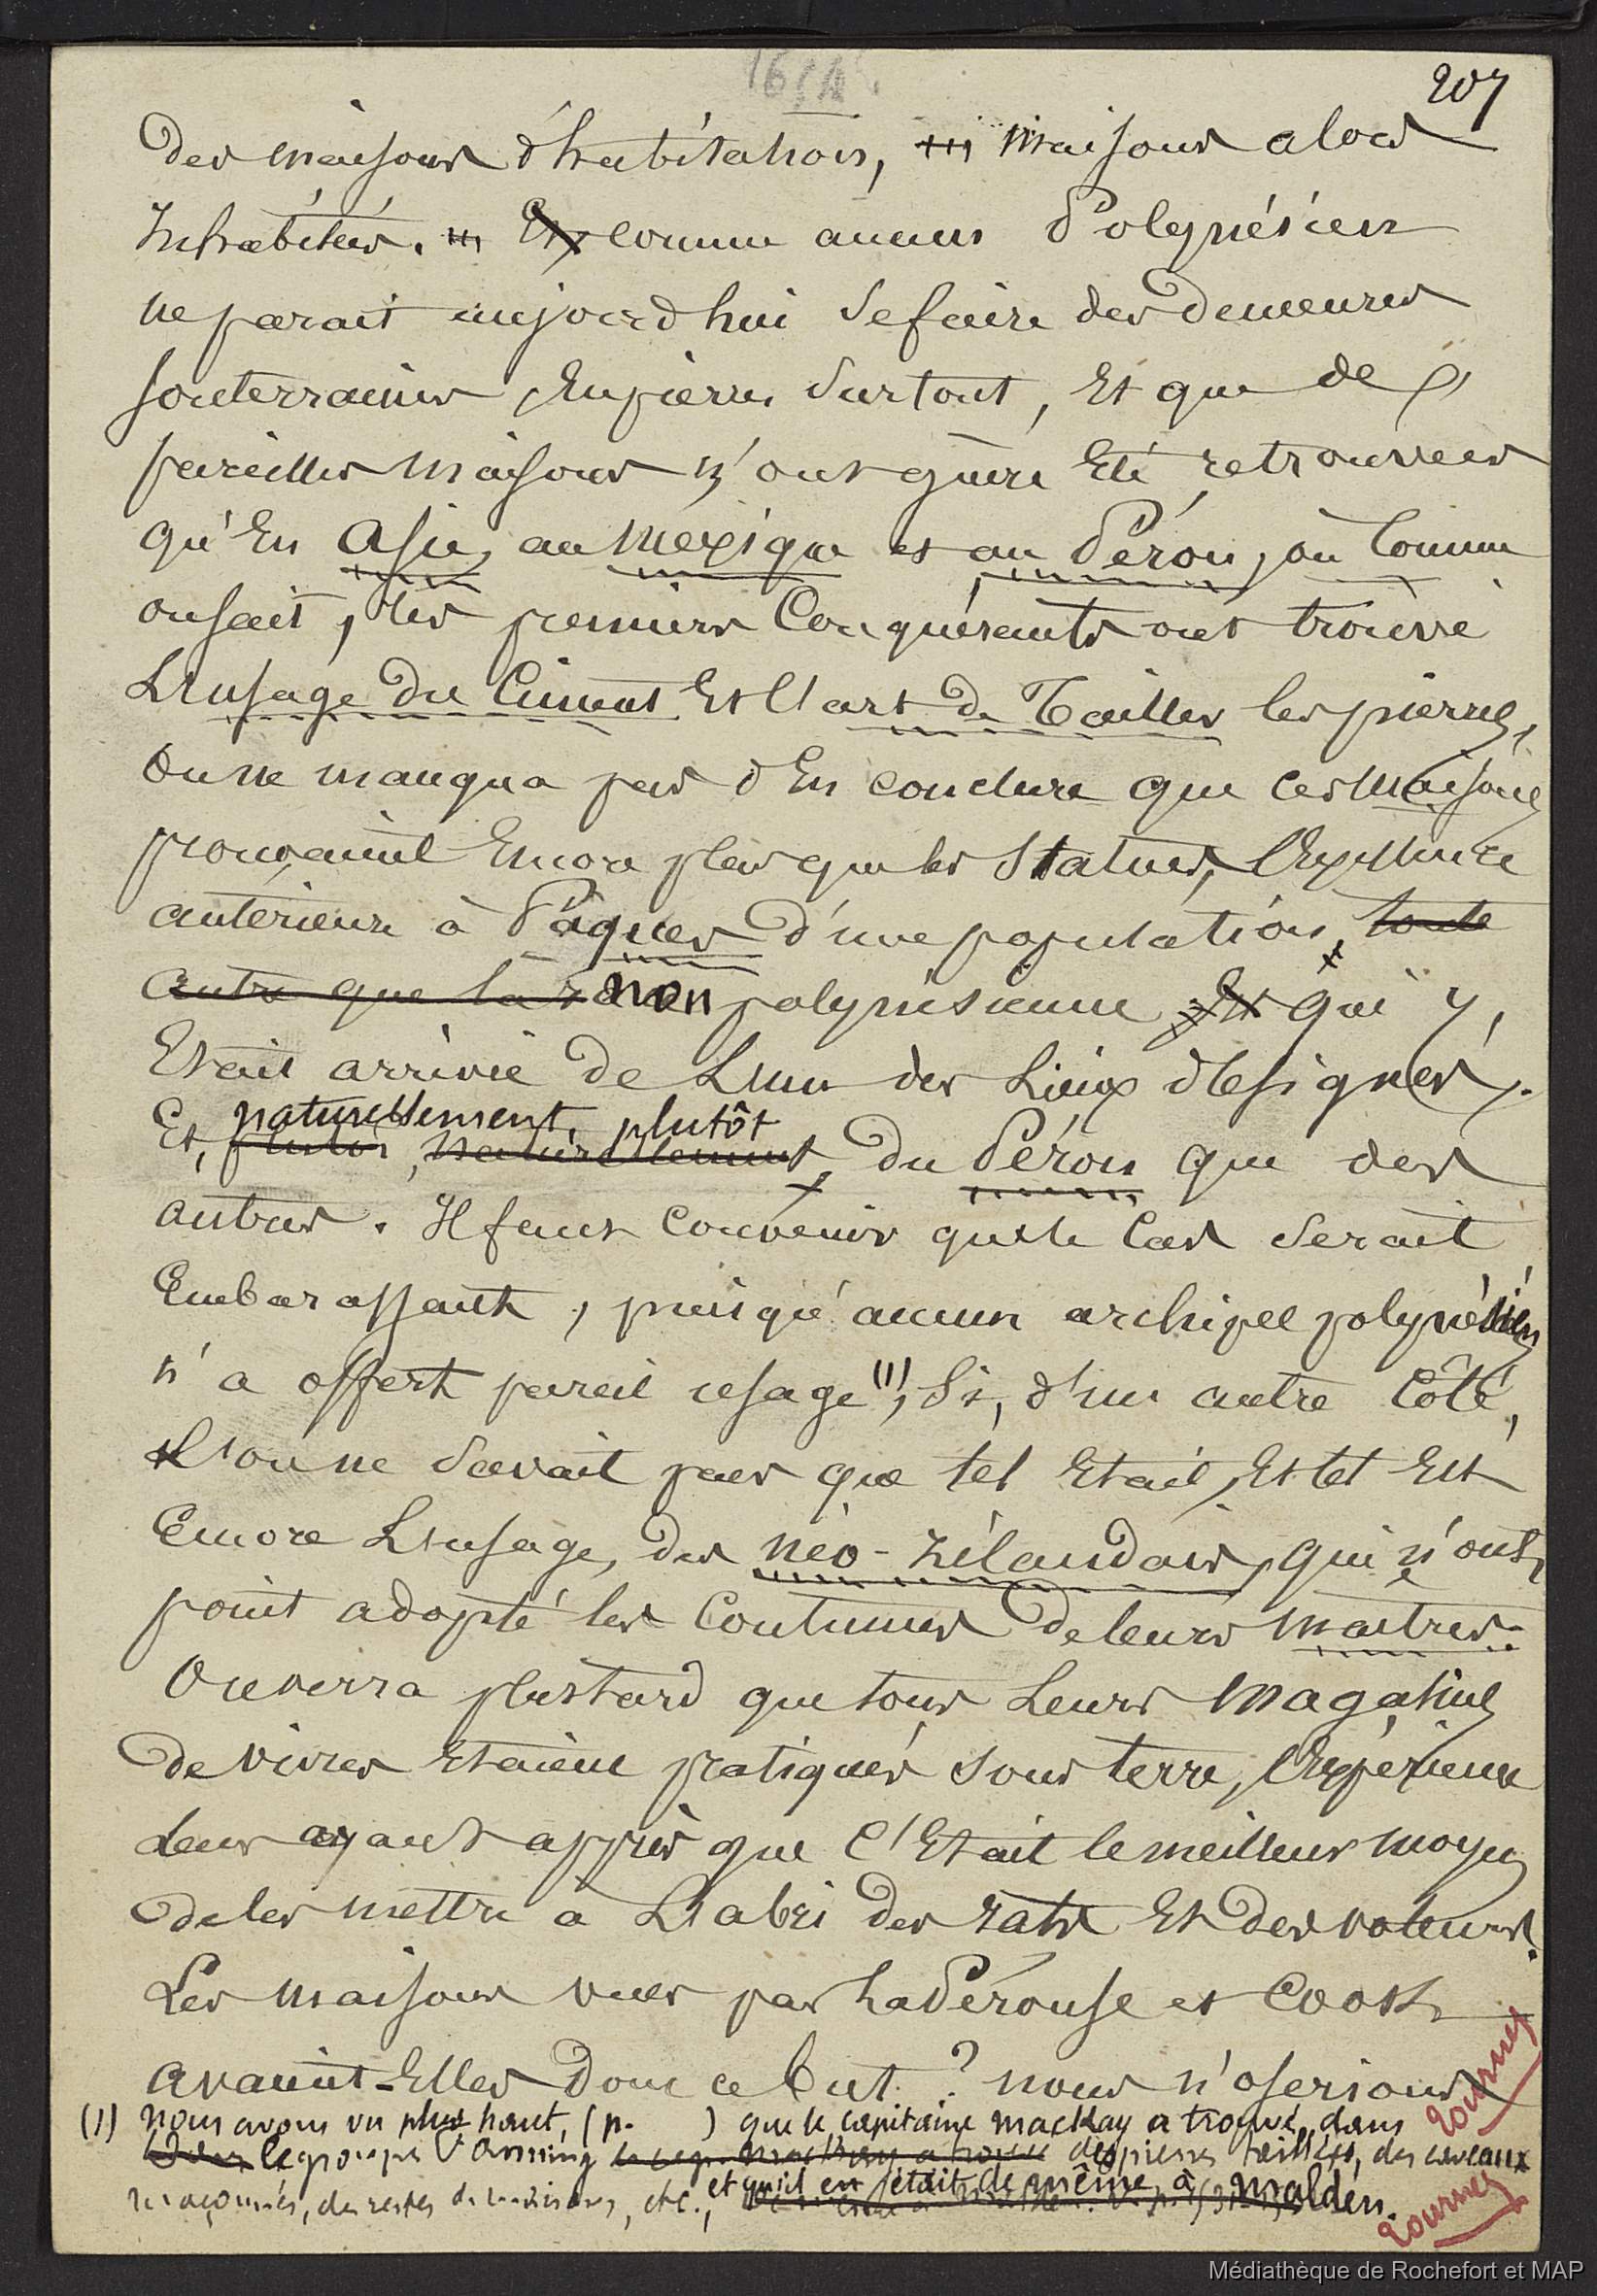 207
des maisons d'habitation, maisons alors
Inhabitées. Et comme aucun Polynésien
ne parait aujourd'hui se faire des demeures
souterraines, En pierres surtout, Et que de
pareilles maisons n'ont guère Eté retrouvées
qu'En Asie, au Mexique et au Pérou, où Comme
on sait, les premiers Conquérants ont trouvé
L'usage du Ciment Et l'art de Tailler les pierres,
On ne manqua pas d'En conclure que ces Maisons
prouvaient Encore plus que les Statues, l'Existence
antérieure à Pâques d'une population, toute
autre que la race non polynésienne Et qui y,
Etait arrivée de L'un des Lieux désignés,
naturellement, plutôt
Et, plutôt, naturellement, du Pérou que des
autres. Il faut Convenir que le Cas serait
Embarassant, puisqu'aucun archipel polynésien
n'a offert pareil usage (1), Si, d'un autre Côté,
L'on ne savait pas que tel Etait, Et tel Est
Encore L'usage, des néo-zélandais, qui n'ont
point adopté les Coutumes de leurs maîtres.
On verra plus tard que tous Leurs Magasins
de vivres Etaient pratiqués sous terre, l'Expérience
Leur ayant appris que C'Etait le meilleur moyen
de les mettre à L'abri des rats Et des voleurs.
Les maisons vues par La Pérouse et Cook
avaient-Elles donc ce but ? nous n'oserions
(1) nous avons vu plus haut, (p. ) que le capitaine Mackay a trouvé, dans
le groupe Fanning des pierres taillées, des caveaux
et qu'il en était de même à Malden.
maçonnés, des restes de maisons, etc.,
Tournez
Tournez
Médiathèque de Rochefort et MAP